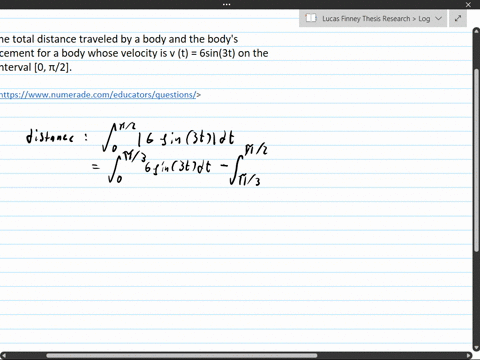 Lucas Finney Thesis Research > Log
he total distance traveled by a body and the body's
cement for a body whose velocity is v (t) = 6sin(3t) on the
nterval [0, π/2].
https://www.numerade.com/educators/questions/>
distance : ∫₀^{π/2} |6 sin(3t)| dt
= ∫₀^{π/3} 6 sin(3t) dt − ∫_{π/3}^{π/2}